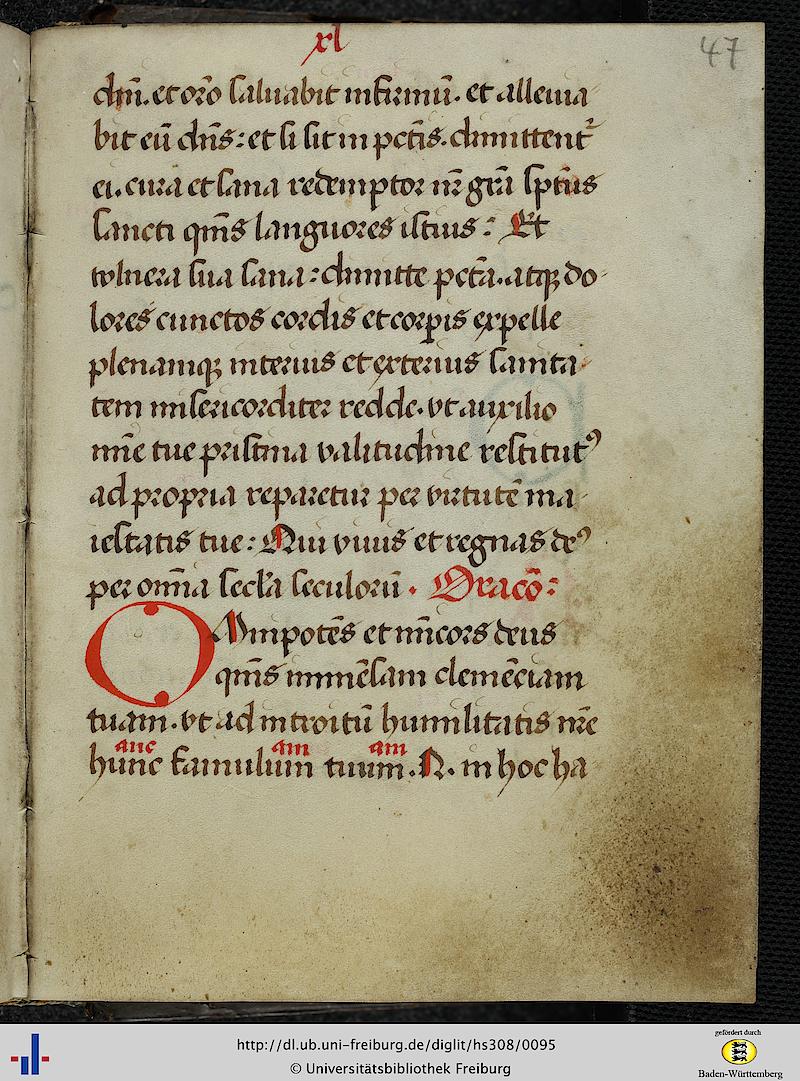 xl
47
dn̄i. et or̄o saluabit infirmū. et alleuia-
bit eū dn̄s: et si sit in pctīs. dimittent᷑
ei. cura et sana redemptor nr̄ gr̄a sptūs
sancti qm̄s languores istius: Et
wlnera sua sana: dimitte pctā. atqꝫ do-
lores cunctos cordis et corp̄is expelle
plenamqꝫ interius et exterius sanita-
tem misericorditer redde. vt auxilio
mīe tue pristina valitudine restitutꝰ
ad propria reparetur per virtutē ma-
iestatis tue: Qui viuis et regnas deꝰ
per omīa secl̄a seculorū. Oracō:
OMnipotēs et mīcors deus
qm̄s immēsam clemēciam
tuam. vt ad introitū humilitatis nr̄e
anc am am
hunc famulum tuum. N. in hoc ha
http://dl.ub.uni-freiburg.de/diglit/hs308/0095
© Universitätsbibliothek Freiburg
gefördert durch
Baden-Württemberg